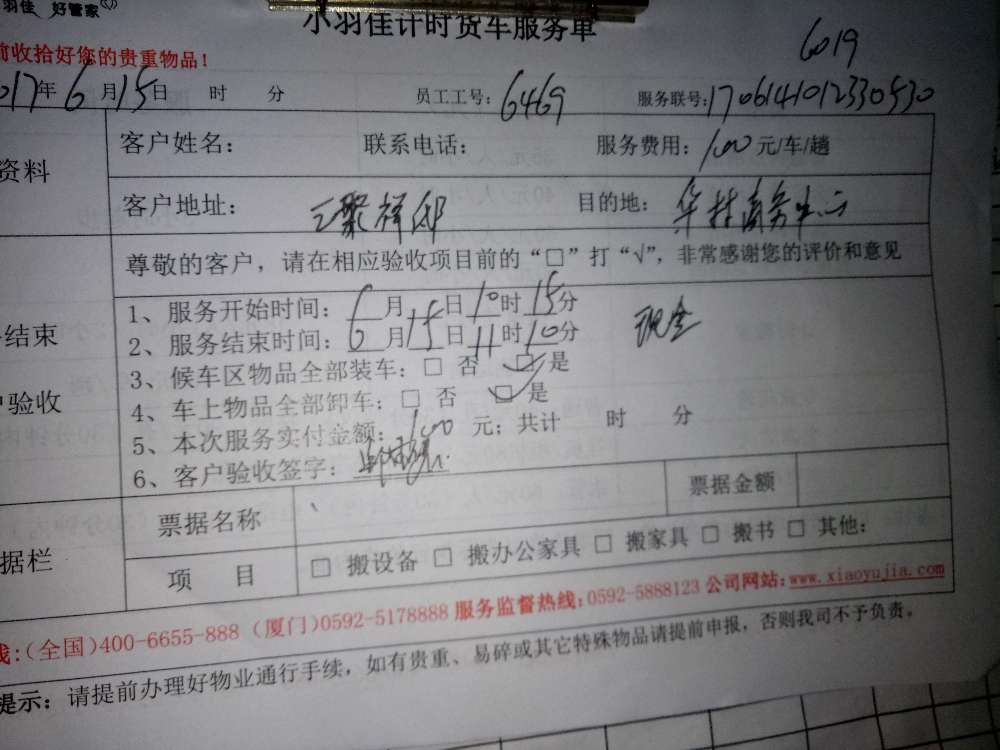 羽佳 好管家
小羽佳计时货车服务单
6019
前收拾好您的贵重物品!
017年6月15日 时 分 员工工号:6469 服务联号:1706141012330530
资料 客户姓名: 联系电话: 服务费用:100元/车/趟
客户地址: 聚祥邸 目的地: 华林商务中心
尊敬的客户,请在相应验收项目前的“□”打“√”,非常感谢您的评价和意见
结束
户验收
1、服务开始时间:6月15日10时15分
2、服务结束时间:6月15日11时10分 现金
3、候车区物品全部装车:□ 否 ☑是
4、车上物品全部卸车:□ 否 ☑是
5、本次服务实付金额:100元;共计 时 分
6、客户验收签字:
据栏 票据名称 票据金额
项 目 □ 搬设备 □ 搬办公家具 □ 搬家具 □ 搬书 □ 其他:
线:(全国)400-6655-888 (厦门)0592-5178888 服务监督热线:0592-5888123 公司网站:www.xiaoyujia.com
提示:请提前办理好物业通行手续,如有贵重、易碎或其它特殊物品请提前申报,否则我司不予负责。